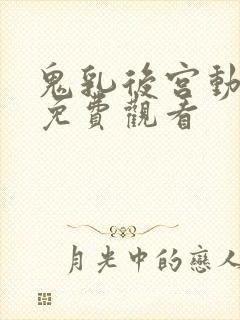 鬼乳後宮動
免費觀看
月光中的戀人